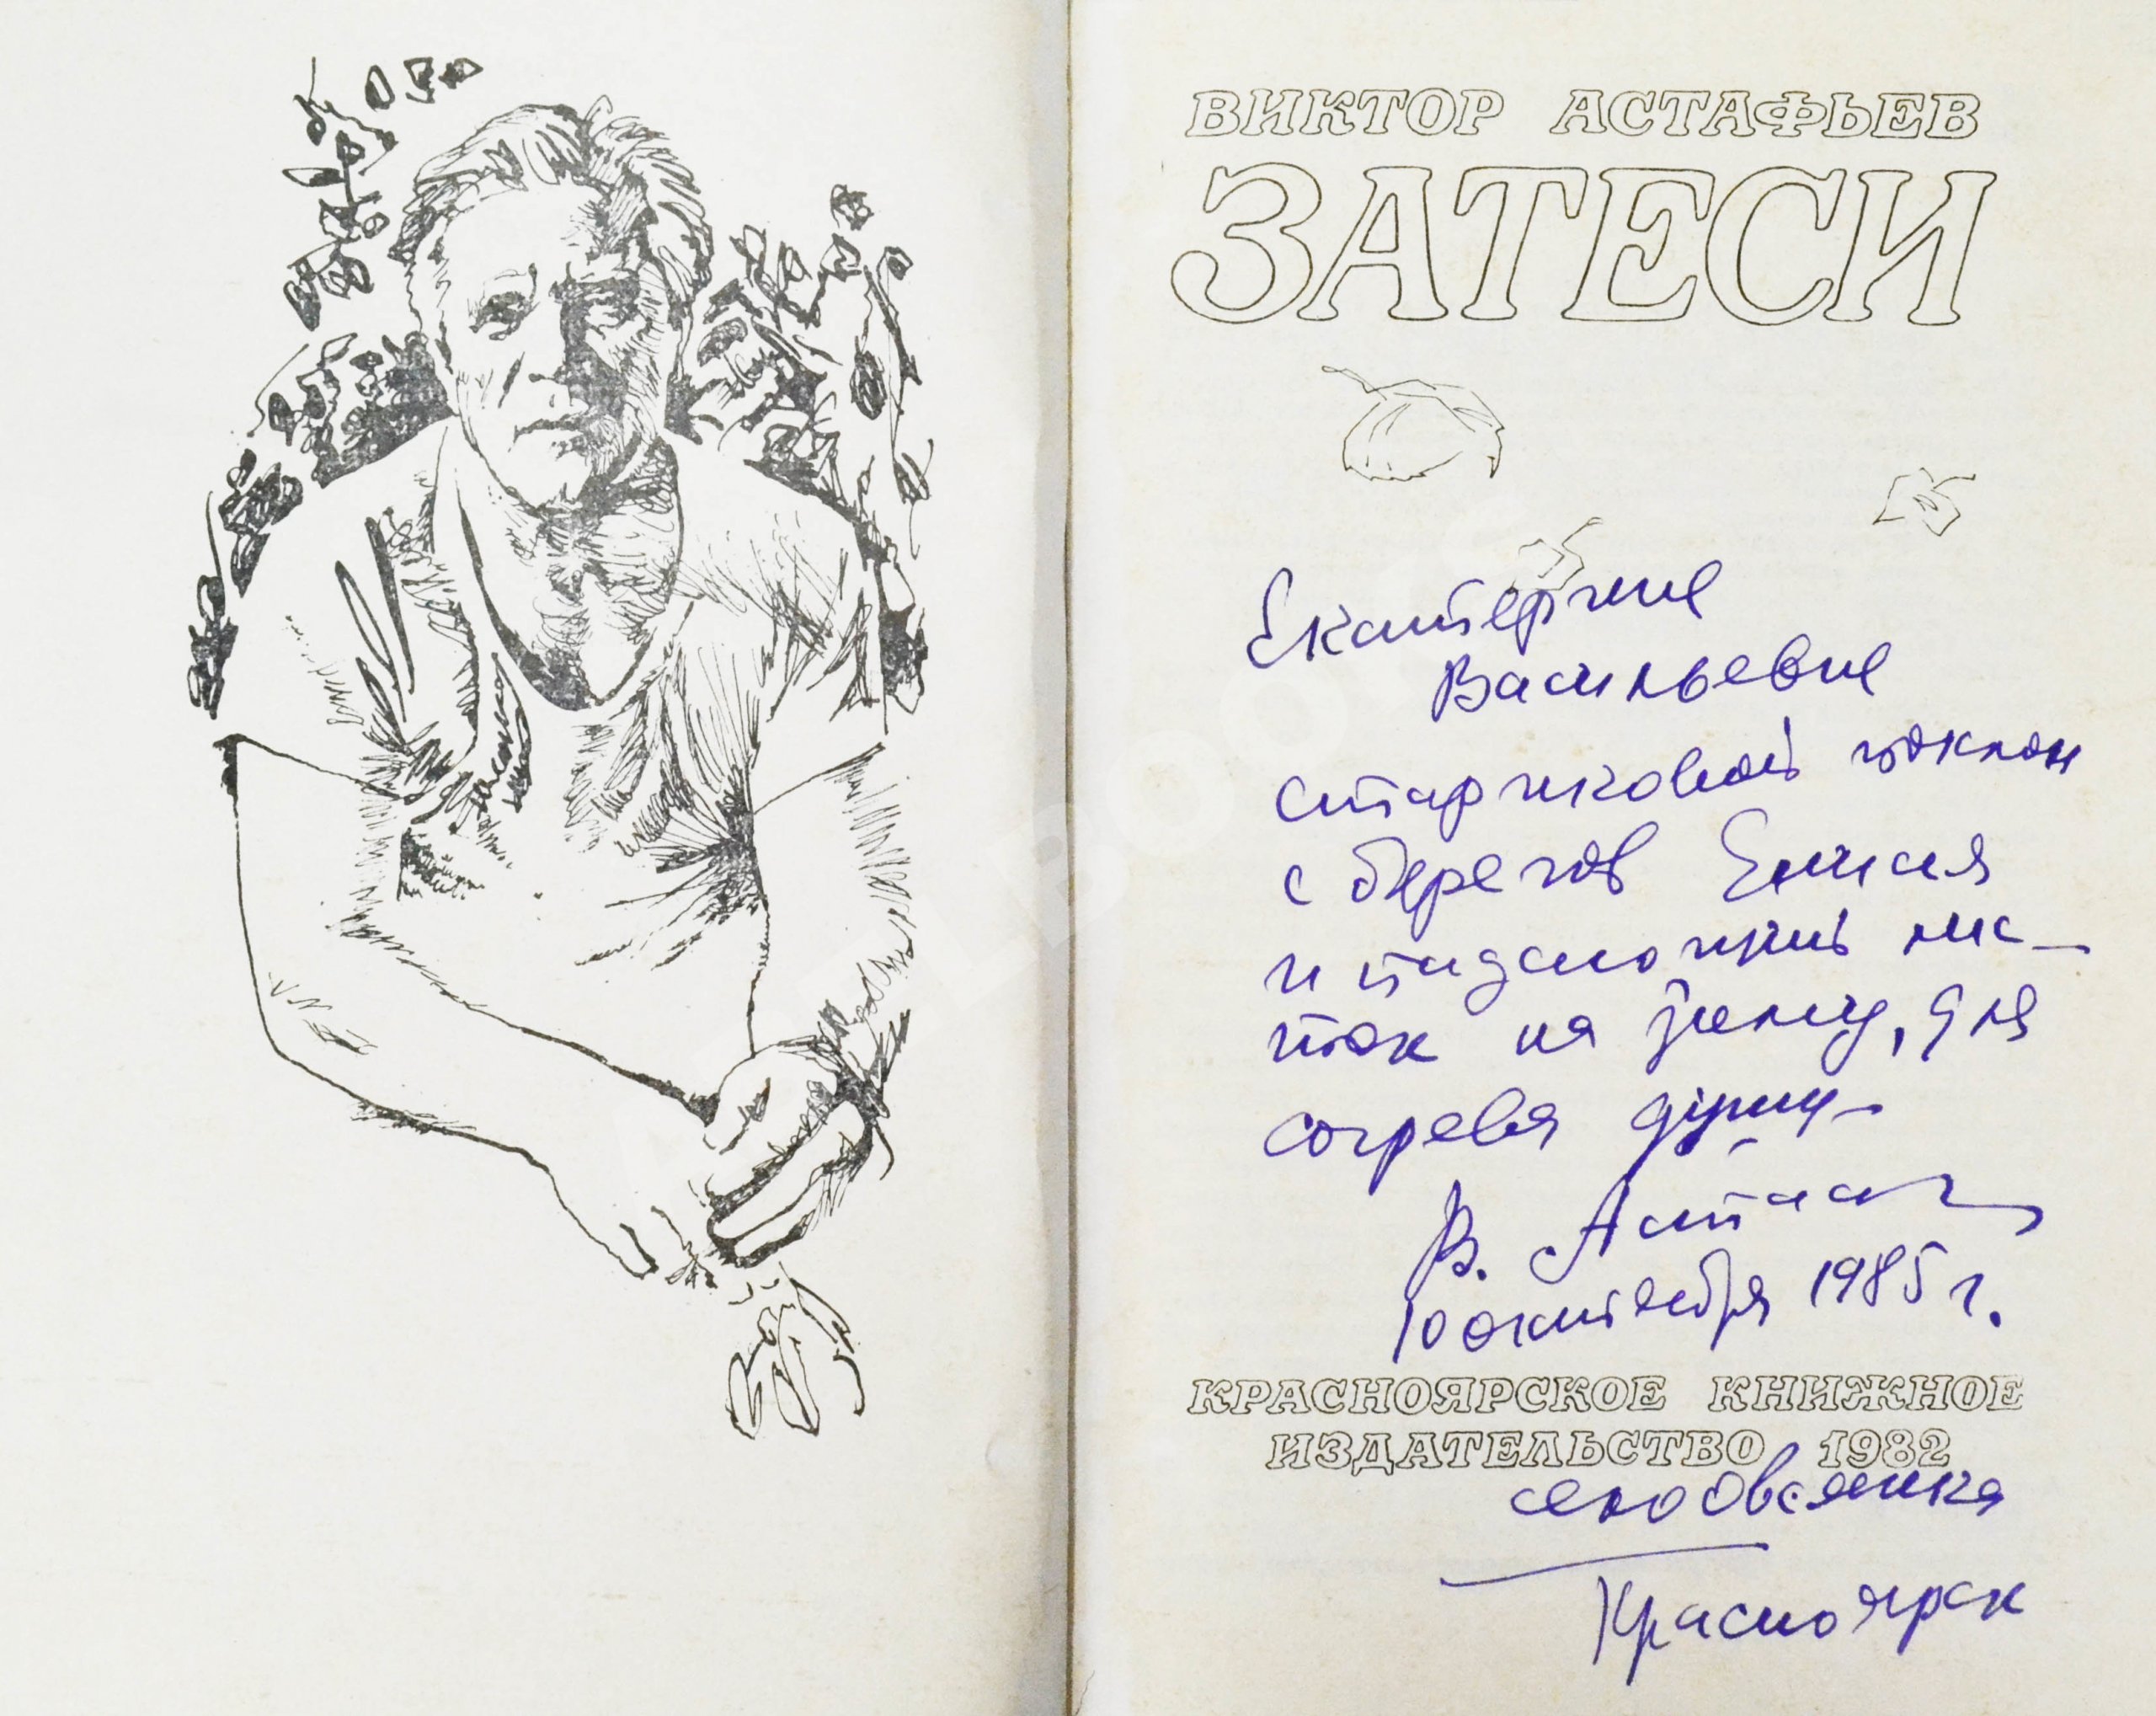 ВИКТОР АСТАФЬЕВ
ЗАТЕСИ
Екатерине
Васильевне
стариковский поклон
с берегов Енисея
и падающий лис-
ток на зиму, для
согрева души
В. Астафьев
10 октября 1985 г.
КРАСНОЯРСКОЕ КНИЖНОЕ
ИЗДАТЕЛЬСТВО 1982
село Овсянка
Красноярск